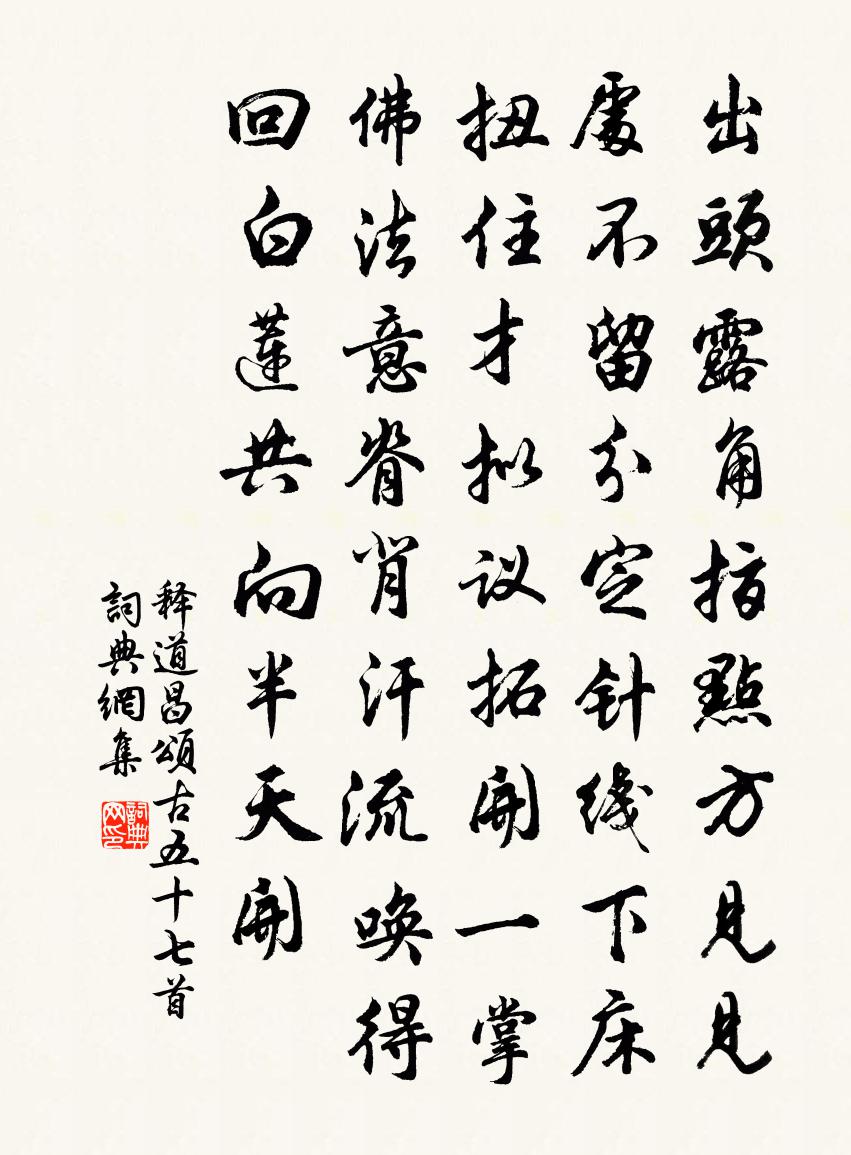 出頭露角指點方見見
處不留分定针线下床
扭住才拟议拓開一掌
佛法意脊背汗流唤得
回白蓮共向半天開
释道昌頌古五十七首
詞典網集
詞典网印